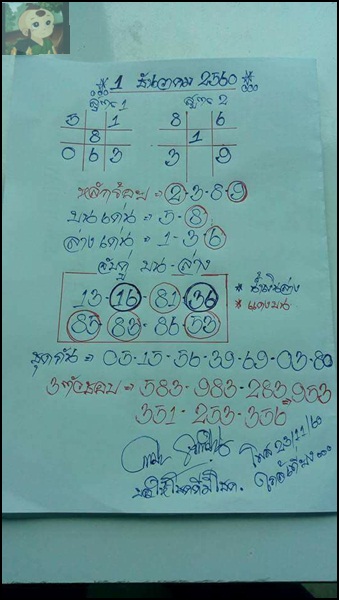 1 ธันวาคม 2560
สูตร 1 สูตร 2
5 1 8 6
8 1
0 6 3 3 9
หลักร้อย = 2-3-8-9
บนเด่น = 5-8
ล่างเด่น = 1-3-6
จับคู่ บน-ล่าง
13-16-81-36
85-83-86-53
* น้ำเงินล่าง
* แดงบน
ชุดกัน = 05-15-56-39-69-03-80
3ตัวชอบ = 583-983-283-953
351-253-356
23/11/60
ขอให้โชคดีมีโชค.